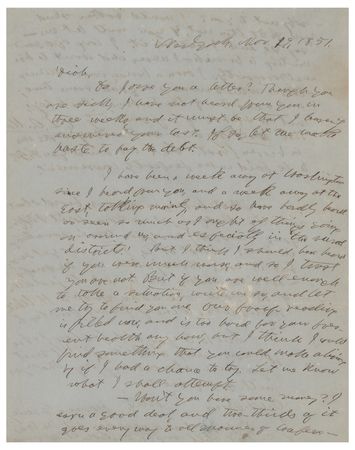 New York, Nov. 19, 1851.
Dick,
Do I owe you a letter? Though you
are sick, I have not heard from you in
three weeks and it must be that I haven't
answered your last. If so, let me make
haste to pay the debt.
I have been a week away at Washington
since I heard from you and a week away at the
East, talking mainly, and so have hardly heard
or seen so much as I ought of things going
on around us and especially in the rural
districts. But I think I should have heard
if you were much worse, and so I trust
you are not. But if you are well enough
to take a situation, write me and let
me try to find you one. Our proof reading
is filled now, and is too hard for your pres-
ent health any how, but I think I could
find something that you could make a living
by if I had a chance to try. Let us know
what I shall attempt.
— Won't you have some money? I
earn a good deal, and two-thirds of it
goes every way to all manner of loafers—